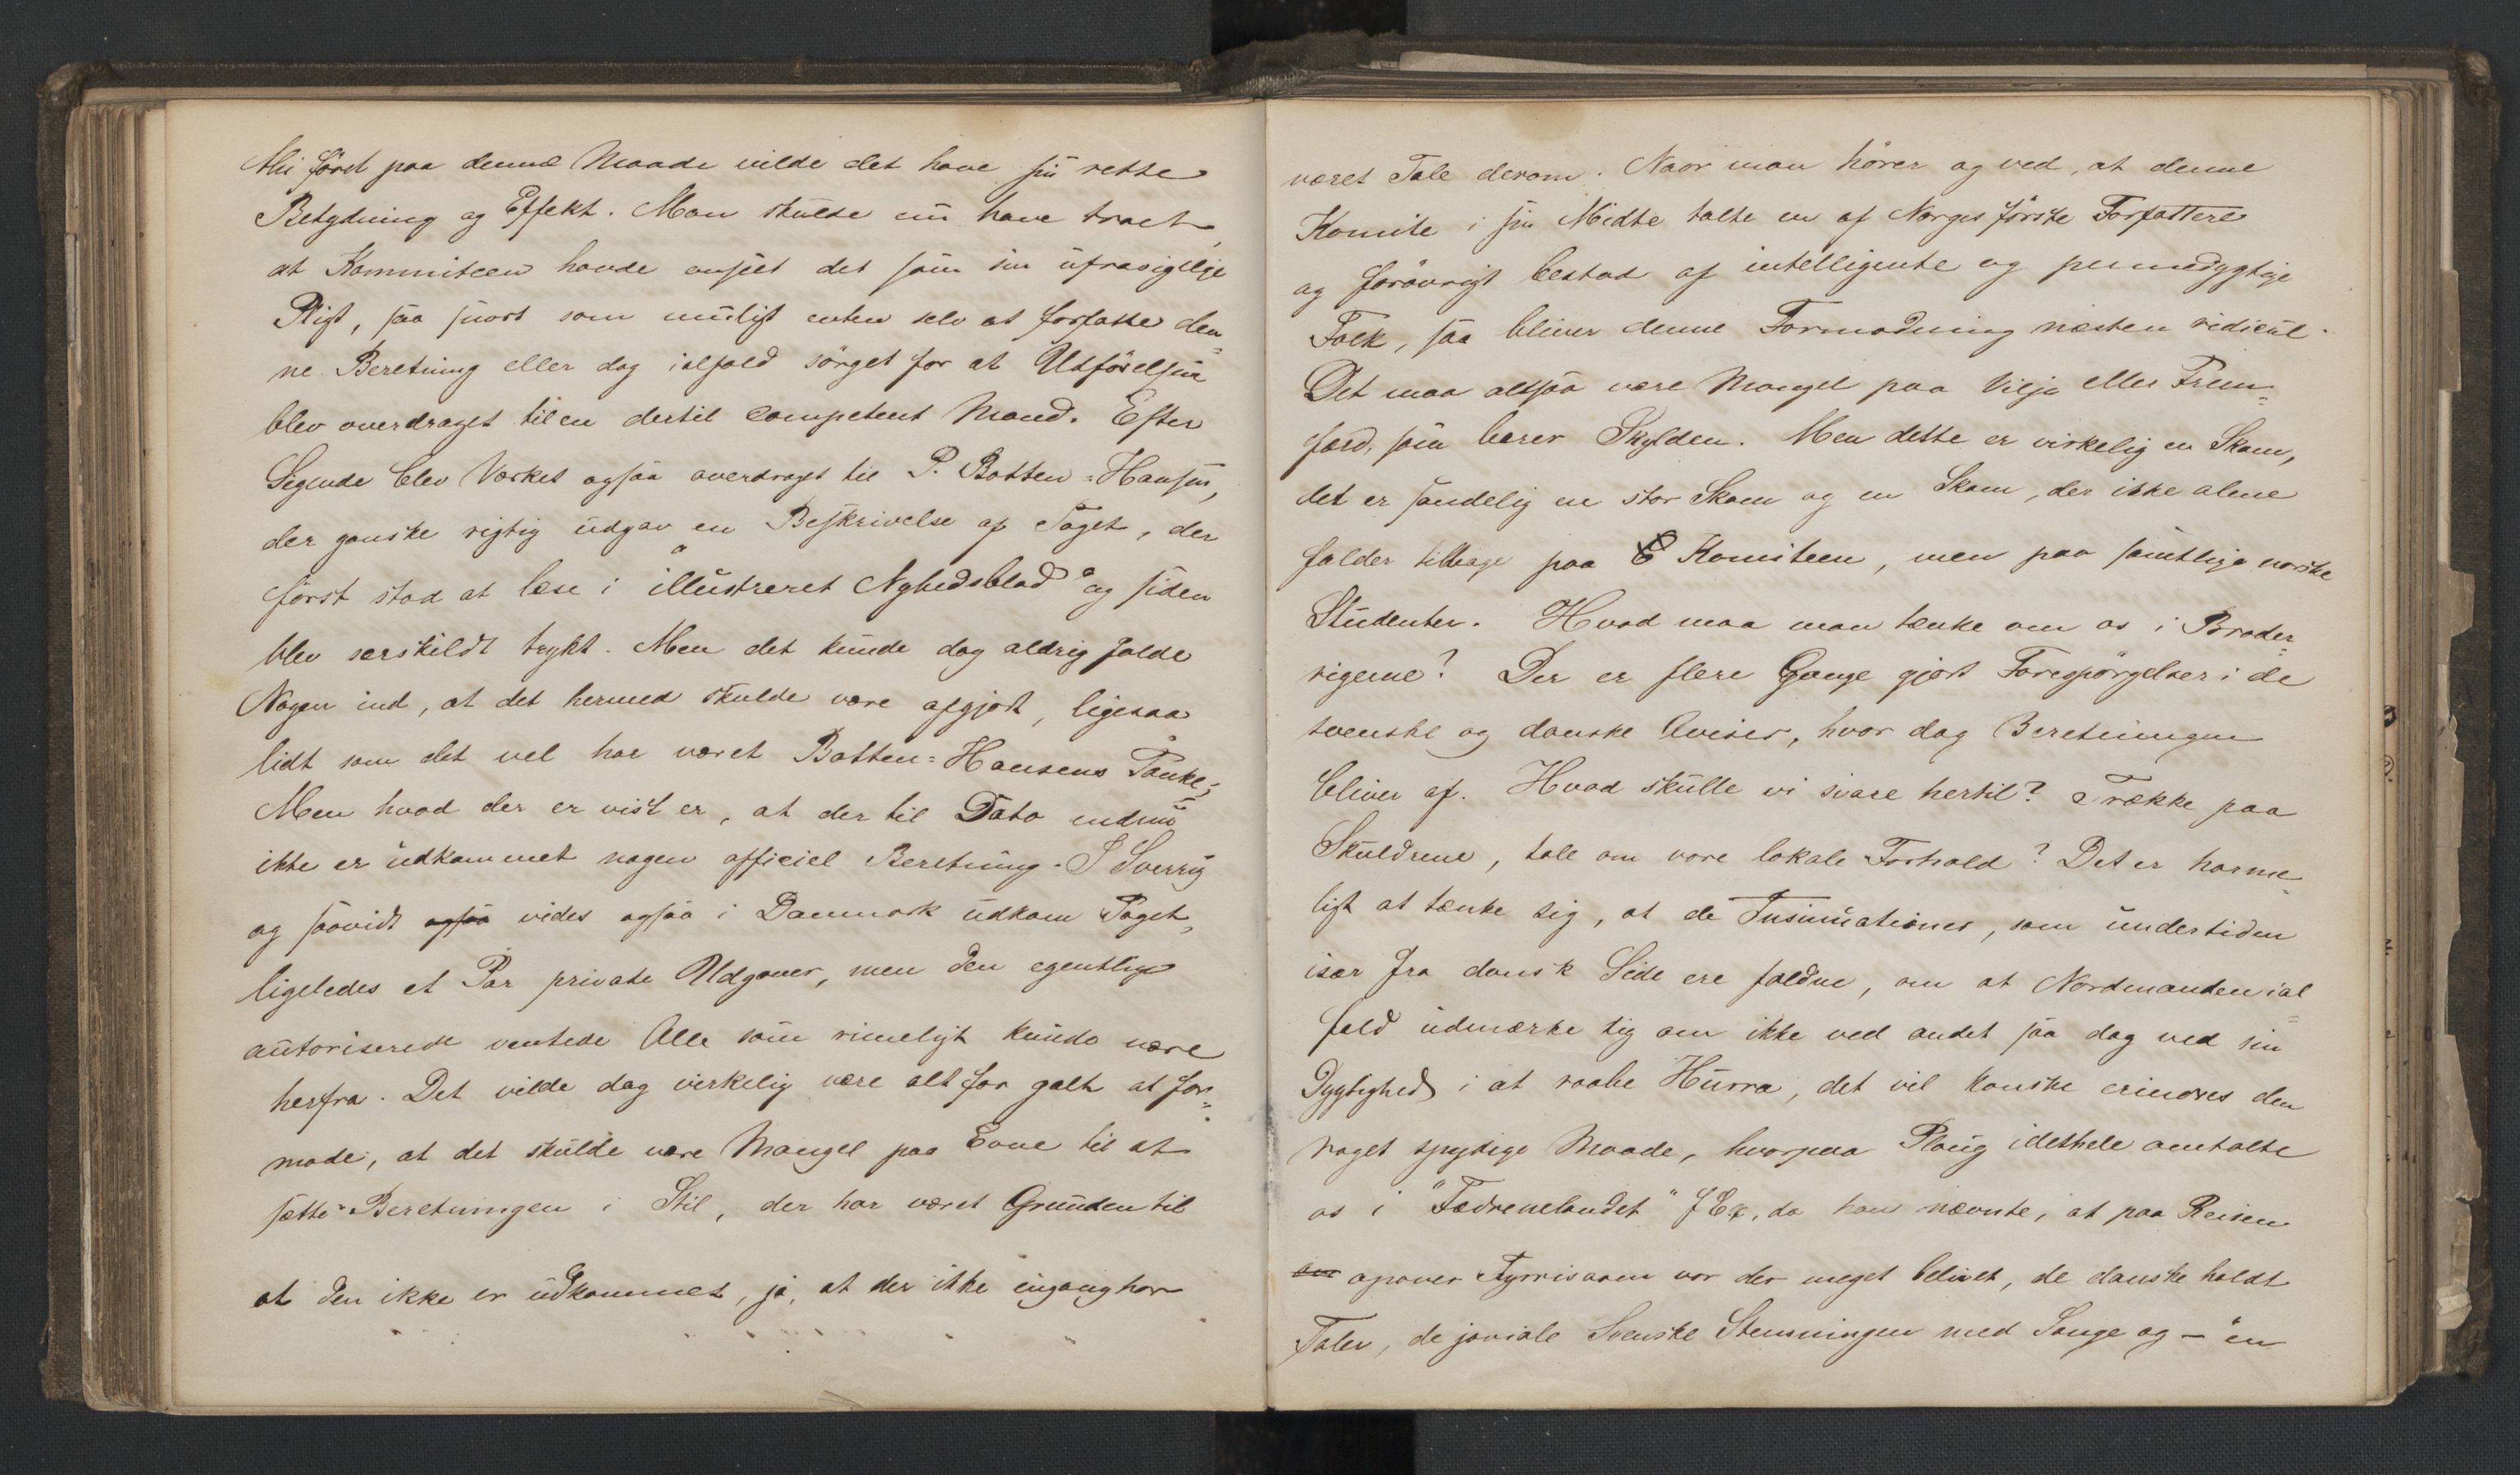 Thi först paa denne Maade vilde det have sin rette
Betydning og Effekt. Man skulde nu have troet,
at Kommiteen havde anseet det som sin ufravigelige
Pligt, saa snart som muligt enten selv at forfatte den-
ne Beretning eller dog ialfald sörget for at Udförelsen
blev overdraget til en dertil competent Mand. Efter
Sigende blev Værket ogsaa overdraget til P. Botten-Hansen,
der ganske rigtig udgav en Beskrivelse af Toget, der
först stod at læse i "illustreret Nyhedsblad" og siden
blev særskildt trykt. Men det kunde dog aldrig falde
Nogen ind, at det hermed skulde være afgjort, ligesaa
lidt som det vel har været Botten-Hansens Tanke;
Men hvad der er vist er, at der til Dato endnu
ikke er udkommet nogen officiel Beretning. I Sverrig
og saavidt ogsaa vides ogsaa i Danmark udkom Toget,
ligeledes et Par private Udgaver, men den egentlige
autoriserede ventede Alle som rimeligt kunde være
herfra. Det vilde dog virkelig være alt for galt at for-
mode, at det skulde være Mangel paa Evne til at
sætte Beretningen i Stil, der har været Grunden til
at den ikke er udkommet, ja, at der ikke engang har
været Tale derom. Naar man hörer og ved, at denne
Komite i sin Midte talte en af Norges förste Forfattere
og forövrigt bestod af intelligente og pennedygtige
Folk, saa bliver denne Formodning næsten ridicul.
Det maa altsaa være Mangel paa Vilje eller Frem-
færd, som bærer Skylden. Men dette er virkelig en Skam,
det er sandelig en stor Skam og en Skam, der ikke alene
falder tilbage paa Komiteen, men paa samtlige norske
Studenter. Hvad maa man tænke om os i Broder-
rigerne? Der er flere Gange gjort Forespörgelser i de
svenske og danske Aviser, hvor dog Beretningen
bliver af. Hvad skulle vi svare hertil? Trække paa
Skuldrene, tale om vore lokale Forhold? Det er harme-
ligt at tænke sig, at de Insinuationer, som undertiden
især fra dansk Side ere faldne, om at Nordmanden ial-
fald udmærke sig om ikke ved andet saa dog ved sin
Dygtighed i at raabe Hurra, det vil kanske erindres den
noget spydige Maade, hvorpaa Ploug idethele omtalte
os i "Fædrenelandet" f Ex, da han nævnte, at paa Reisen
om opover Fyrrisaaen var der meget belivet, de danske holdt
Taler, de joviale Svenske Stemningen med Sange og – "en